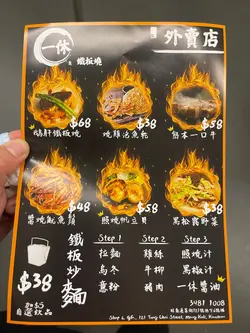 一休
鐵板燒
外賣店
$68
$38
$58
鵝肝鐵板燒
燒雞泡魚乾
熊本一口牛
$48
$38
$38
醬燒魷魚鬚
照燒帆立貝
黑松露野菜
鐵板炒麵
$38
Step 1
Step 2
Step 3
拉麵
雞絲
照燒汁
烏冬
牛柳
黑椒汁
意粉
豬肉
一休醬油
加$5
選飲品
Shop 6, G/F, 121 Tung Choi Street, Mong Kok, Kowloon